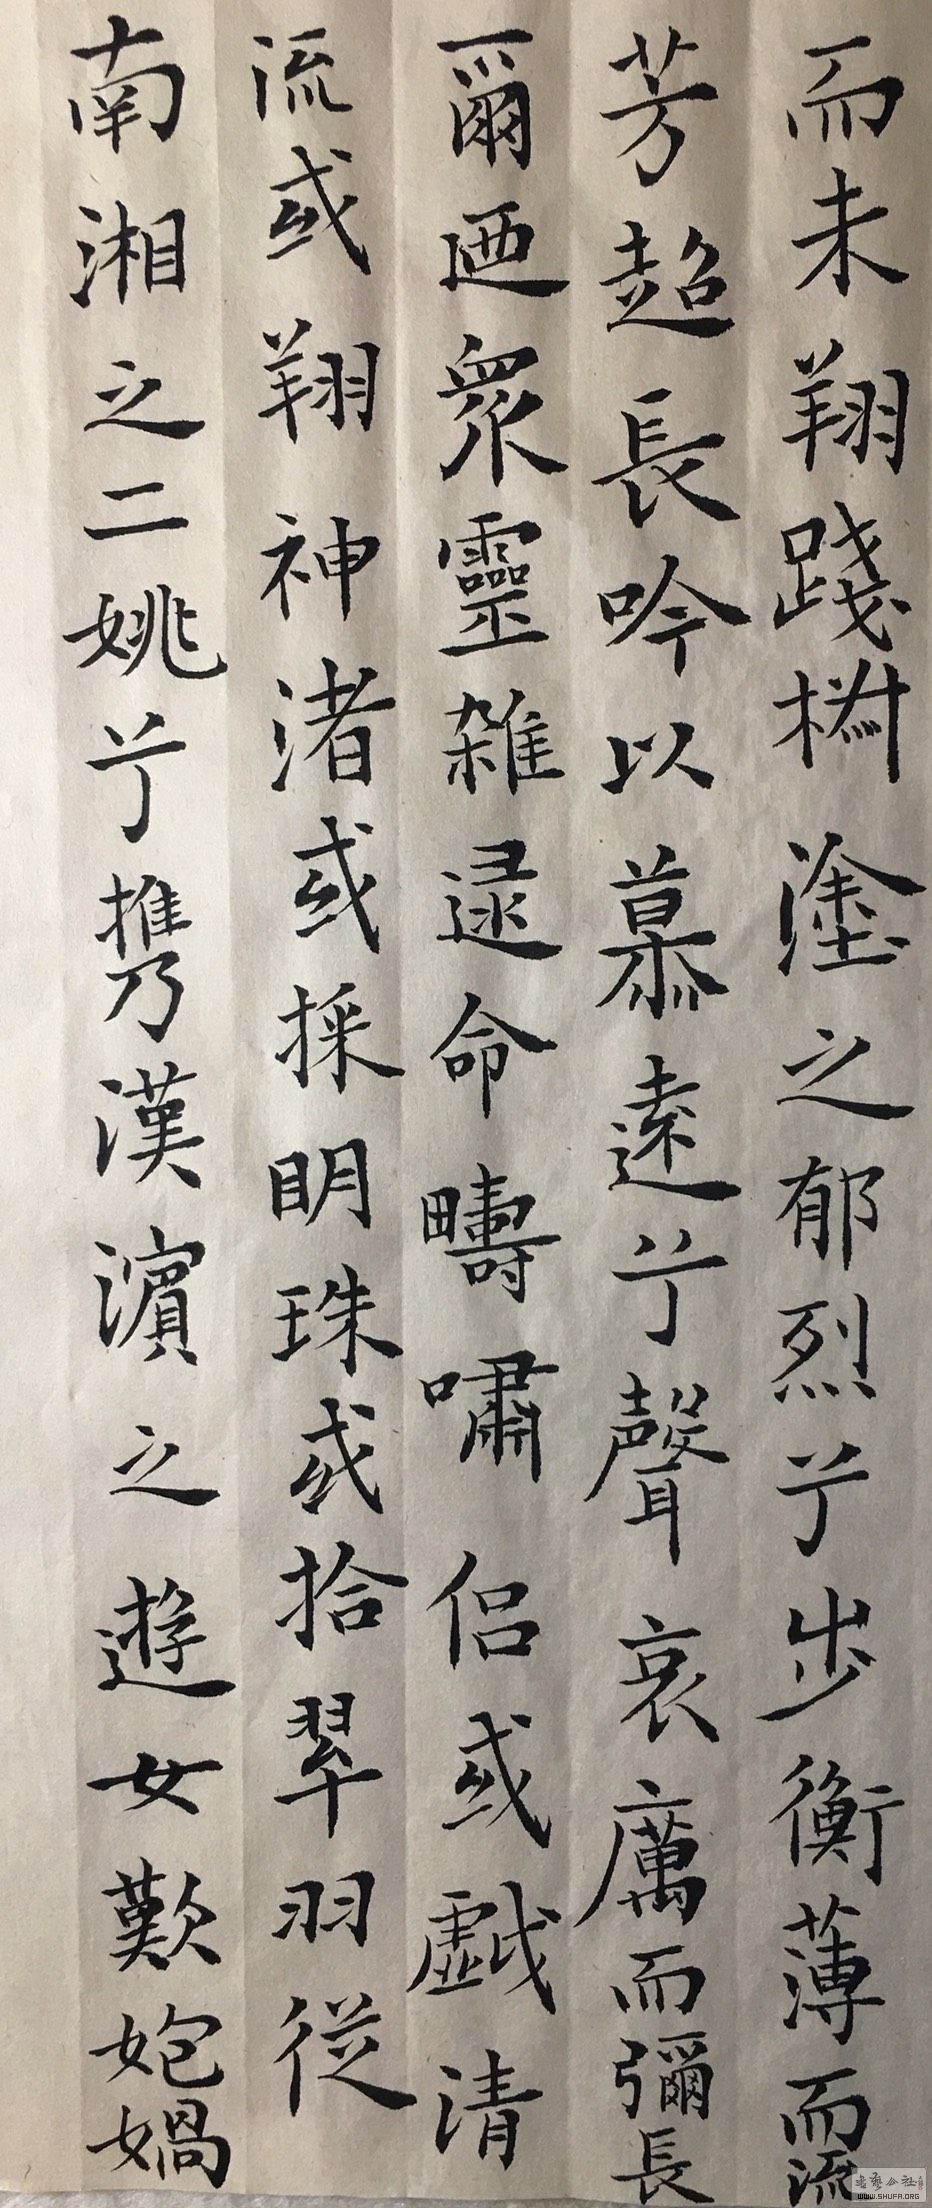 而未翔踐椒塗之郁烈兮步衡薄而流
芳超長吟以慕遠兮聲哀厲而彌長
爾迺衆靈雜逯命疇嘯侶或戲清
流或翔神渚或採明珠或拾翠羽從
南湘之二姚兮携漢濱之遊女歎匏媧
WWW.SHUFA.ORG